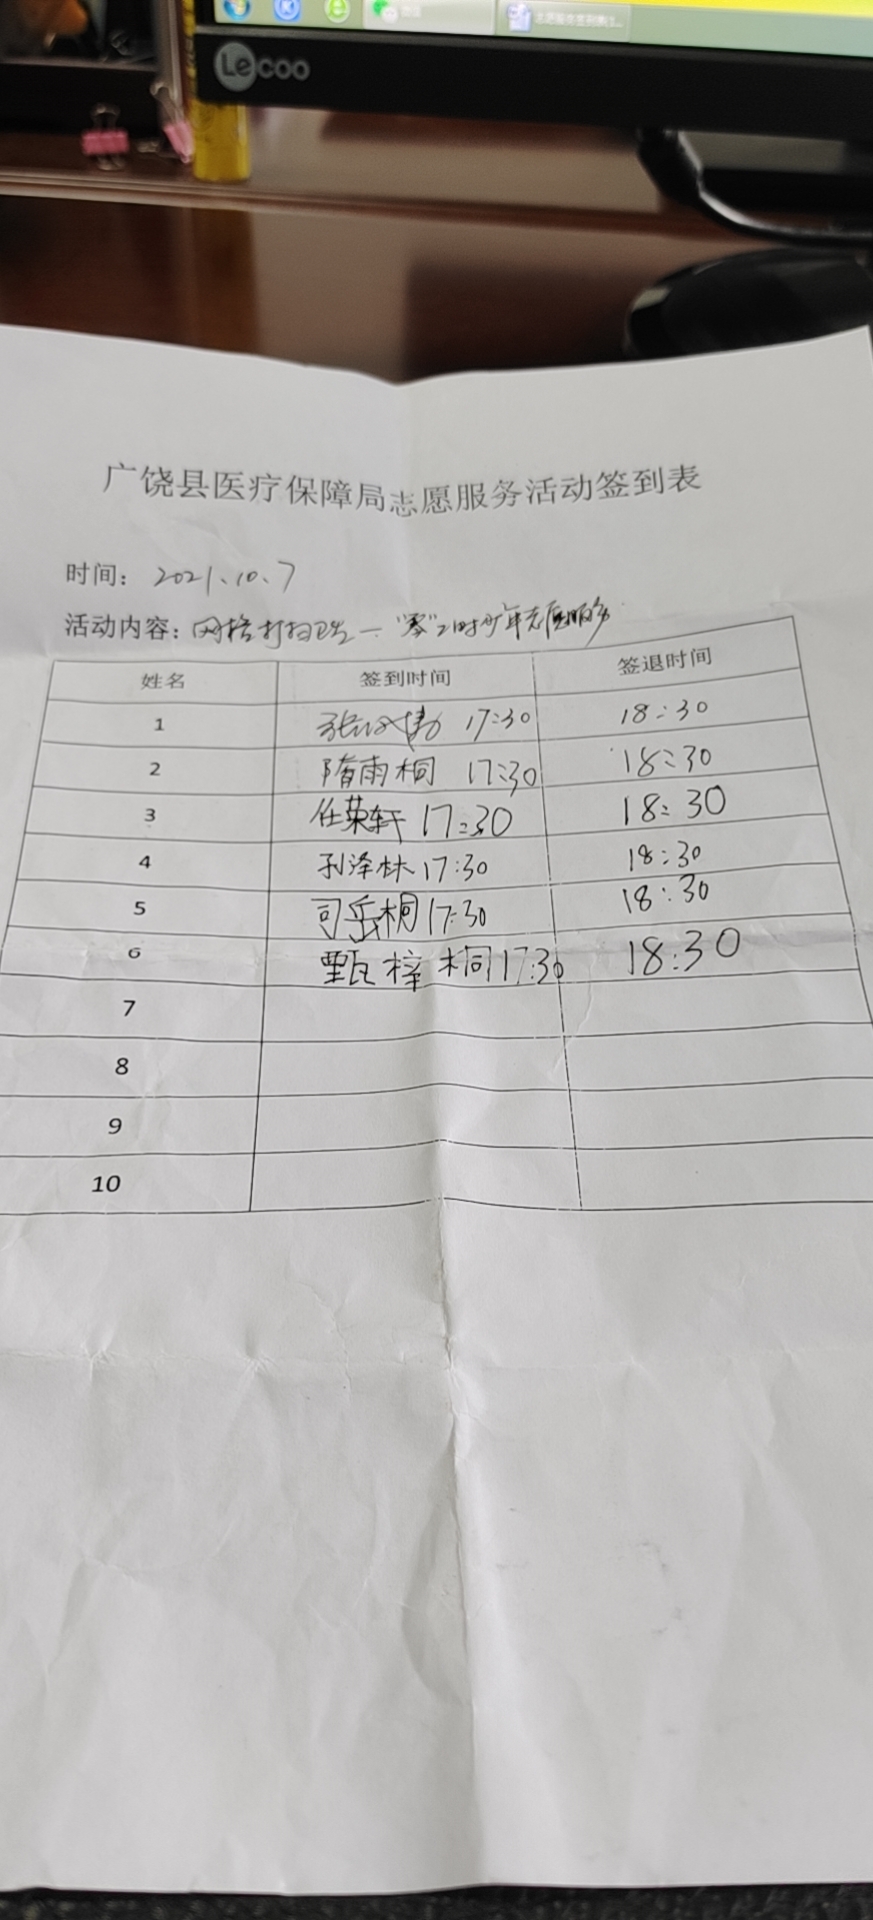 Lecoo
广饶县医疗保障局志愿服务活动签到表
时间: 2021.10.7
活动内容: 网格打扫卫生一"零"
姓名 签到时间 签退时间
1 张 17:30 18:30
2 隋雨桐 17:30 18:30
3 任荣轩 17:30 18:30
4 孙泽林 17:30 18:30
5 司岳桐 17:30 18:30
6 甄梓桐 17:30 18:30
7
8
9
10